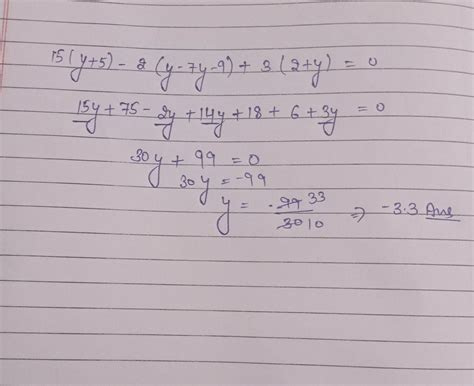 15(y+5) - 2(y-7y-9) + 3(2+y) = 0
15y + 75 - 2y + 14y + 18 + 6 + 3y = 0
30y + 99 = 0
30y = -99
y = -99 33 / 30 10 => -3.3 Ans